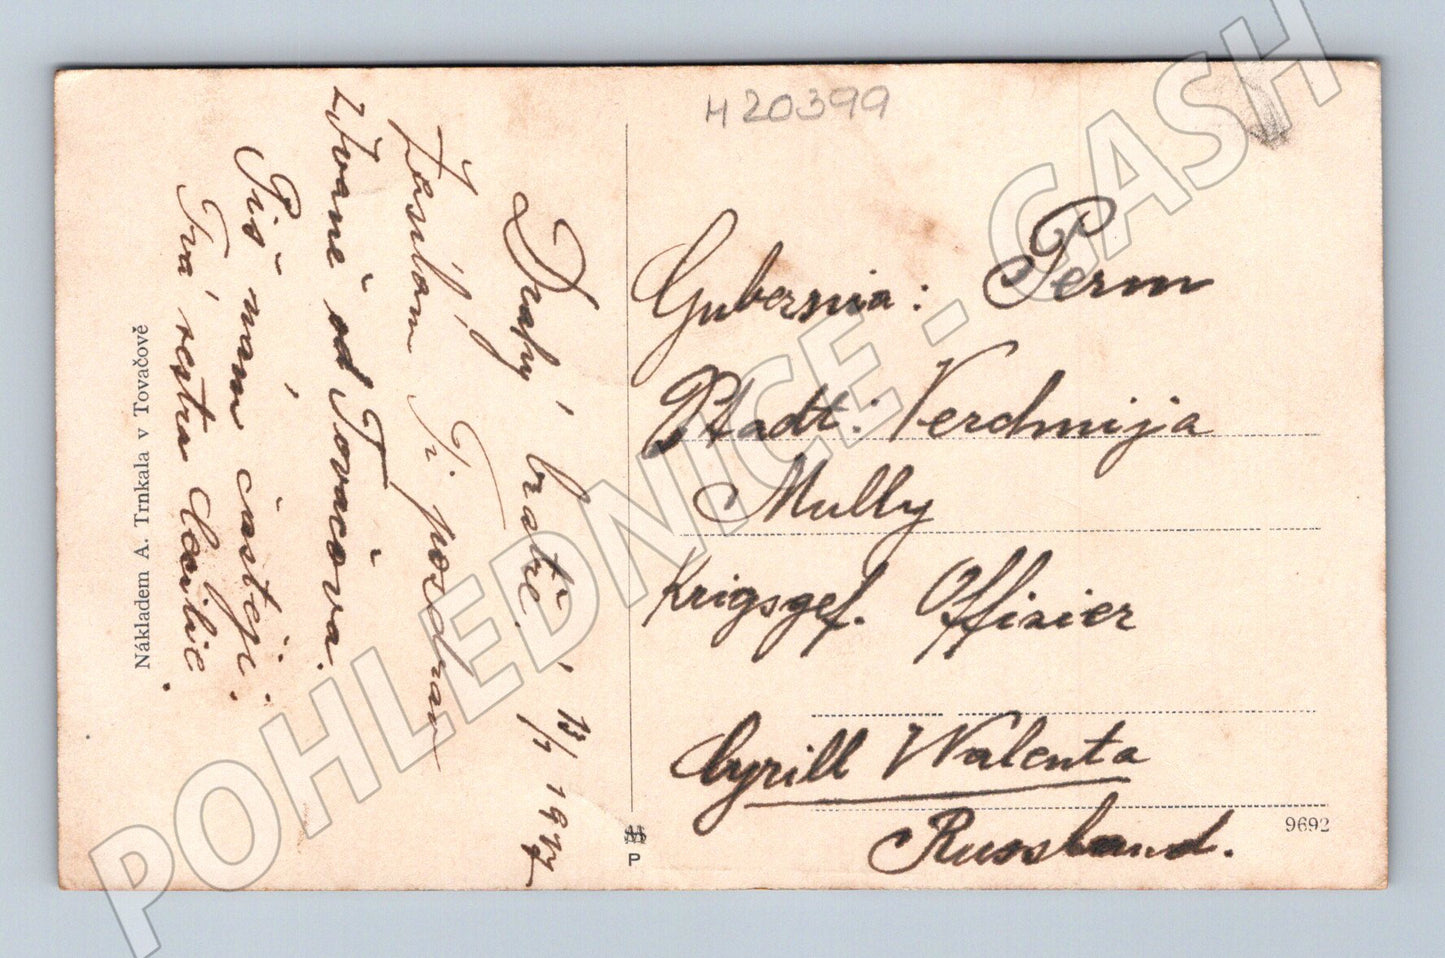 H 20399
Drahý bratře! 13/7 1917
Zasílám Ti pozdrav
z Tvaně od Tovačova.
Piš nám častěji.
Tvá sestra
Nákladem A. Trnkala v Tovačově
Gubernia: Perm
Stadt: Verchnija
Mully
Krigsgef. Offizier
Cyrill Walenta
Russland.
9692
P
POHLEDNICE - CASH